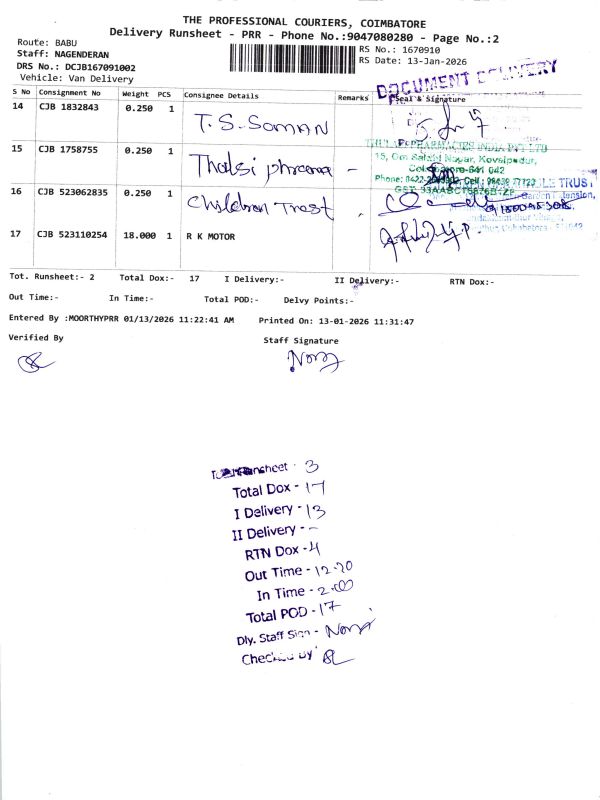 THE PROFESSIONAL COURIERS, COIMBATORE
Delivery Runsheet - PRR - Phone No.:9047080280 - Page No.:2
Route: BABU
Staff: NAGENDERAN
DRS No.: DCJB167091002
Vehicle: Van Delivery
RS No.: 1670910
RS Date: 13-Jan-2026
DOCUMENT DELIVERY
S No Consignment No Weight PCS Consignee Details Remarks Seal & Signature
14 CJB 1832843 0.250 1 T.S.Soman
15 CJB 1758755 0.250 1 Thalsi phrama -
PHARMACIES INDIA PVT LTD
15, Om Sakthi Nagar, Kovaipudur,
Coimbatore-641 042
16 CJB 523062835 0.250 1 Children Trust
TRUST
17 CJB 523110254 18.000 1 R K MOTOR
Tot. Runsheet:- 2 Total Dox:- 17 I Delivery:- II Delivery:- RTN Dox:-
Out Time:- In Time:- Total POD:- Delvy Points:-
Entered By :MOORTHYPRR 01/13/2026 11:22:41 AM Printed On: 13-01-2026 11:31:47
Verified By Staff Signature
Runsheet - 3
Total Dox - 17
I Delivery - 13
II Delivery - -
RTN Dox - 4
Out Time - 12-20
In Time - 2-00
Total POD - 17
Dly. Staff Sign -
Checked By